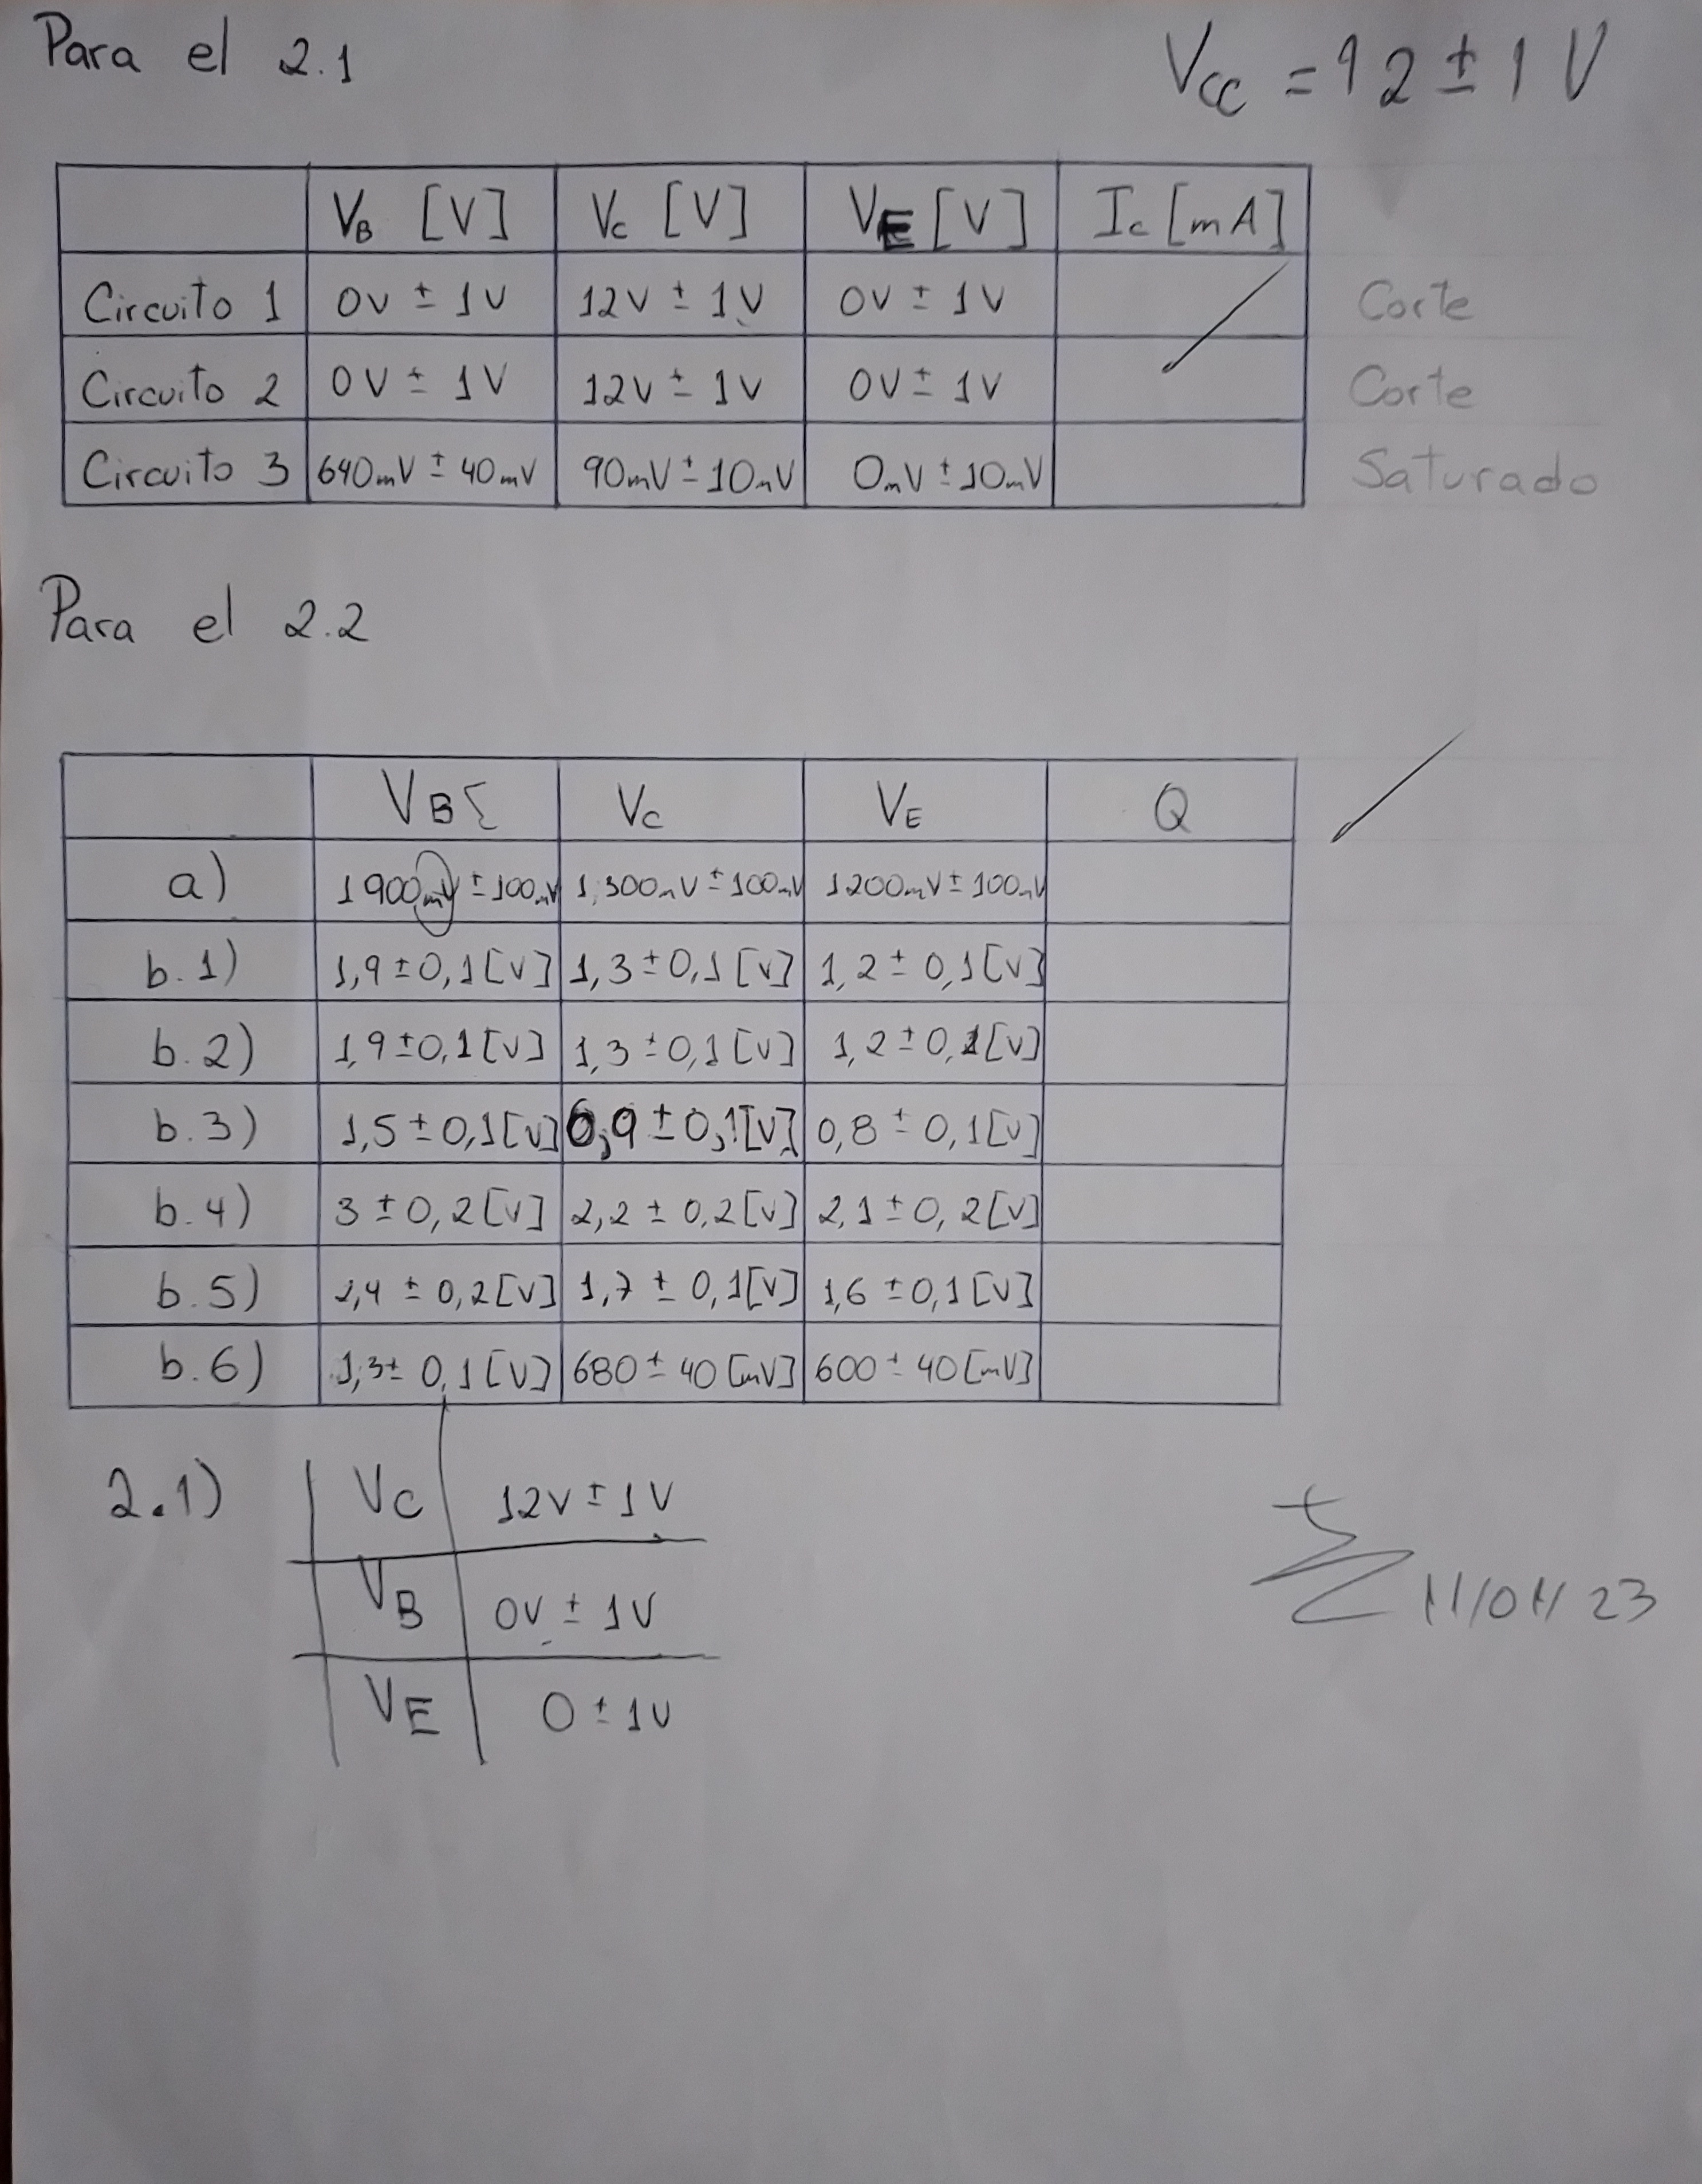 Para el 2.1
Vcc = 12 ± 1 V
VB [V] Vc [V] VE [V] Ic [mA]
Circuito 1 0V ± 1V 12V ± 1V 0V ± 1V Corte
Circuito 2 0V ± 1V 12V ± 1V 0V ± 1V Corte
Circuito 3 640mV ± 40mV 90mV ± 10mV 0mV ± 10mV Saturado
Para el 2.2
VB Vc VE Q
a) 1900mV ± 100mV 1,300mV ± 100mV 1200mV ± 100mV
b.1) 1,9 ± 0,1 [V] 1,3 ± 0,1 [V] 1,2 ± 0,1 [V]
b.2) 1,9 ± 0,1 [V] 1,3 ± 0,1 [V] 1,2 ± 0,1 [V]
b.3) 1,5 ± 0,1 [V] 0,9 ± 0,1 [V] 0,8 ± 0,1 [V]
b.4) 3 ± 0,2 [V] 2,2 ± 0,2 [V] 2,1 ± 0,2 [V]
b.5) 2,4 ± 0,2 [V] 1,7 ± 0,1 [V] 1,6 ± 0,1 [V]
b.6) 1,3 ± 0,1 [V] 680 ± 40 [mV] 600 ± 40 [mV]
2.1) Vc 12V ± 1V
VB 0V ± 1V
VE 0 ± 1V